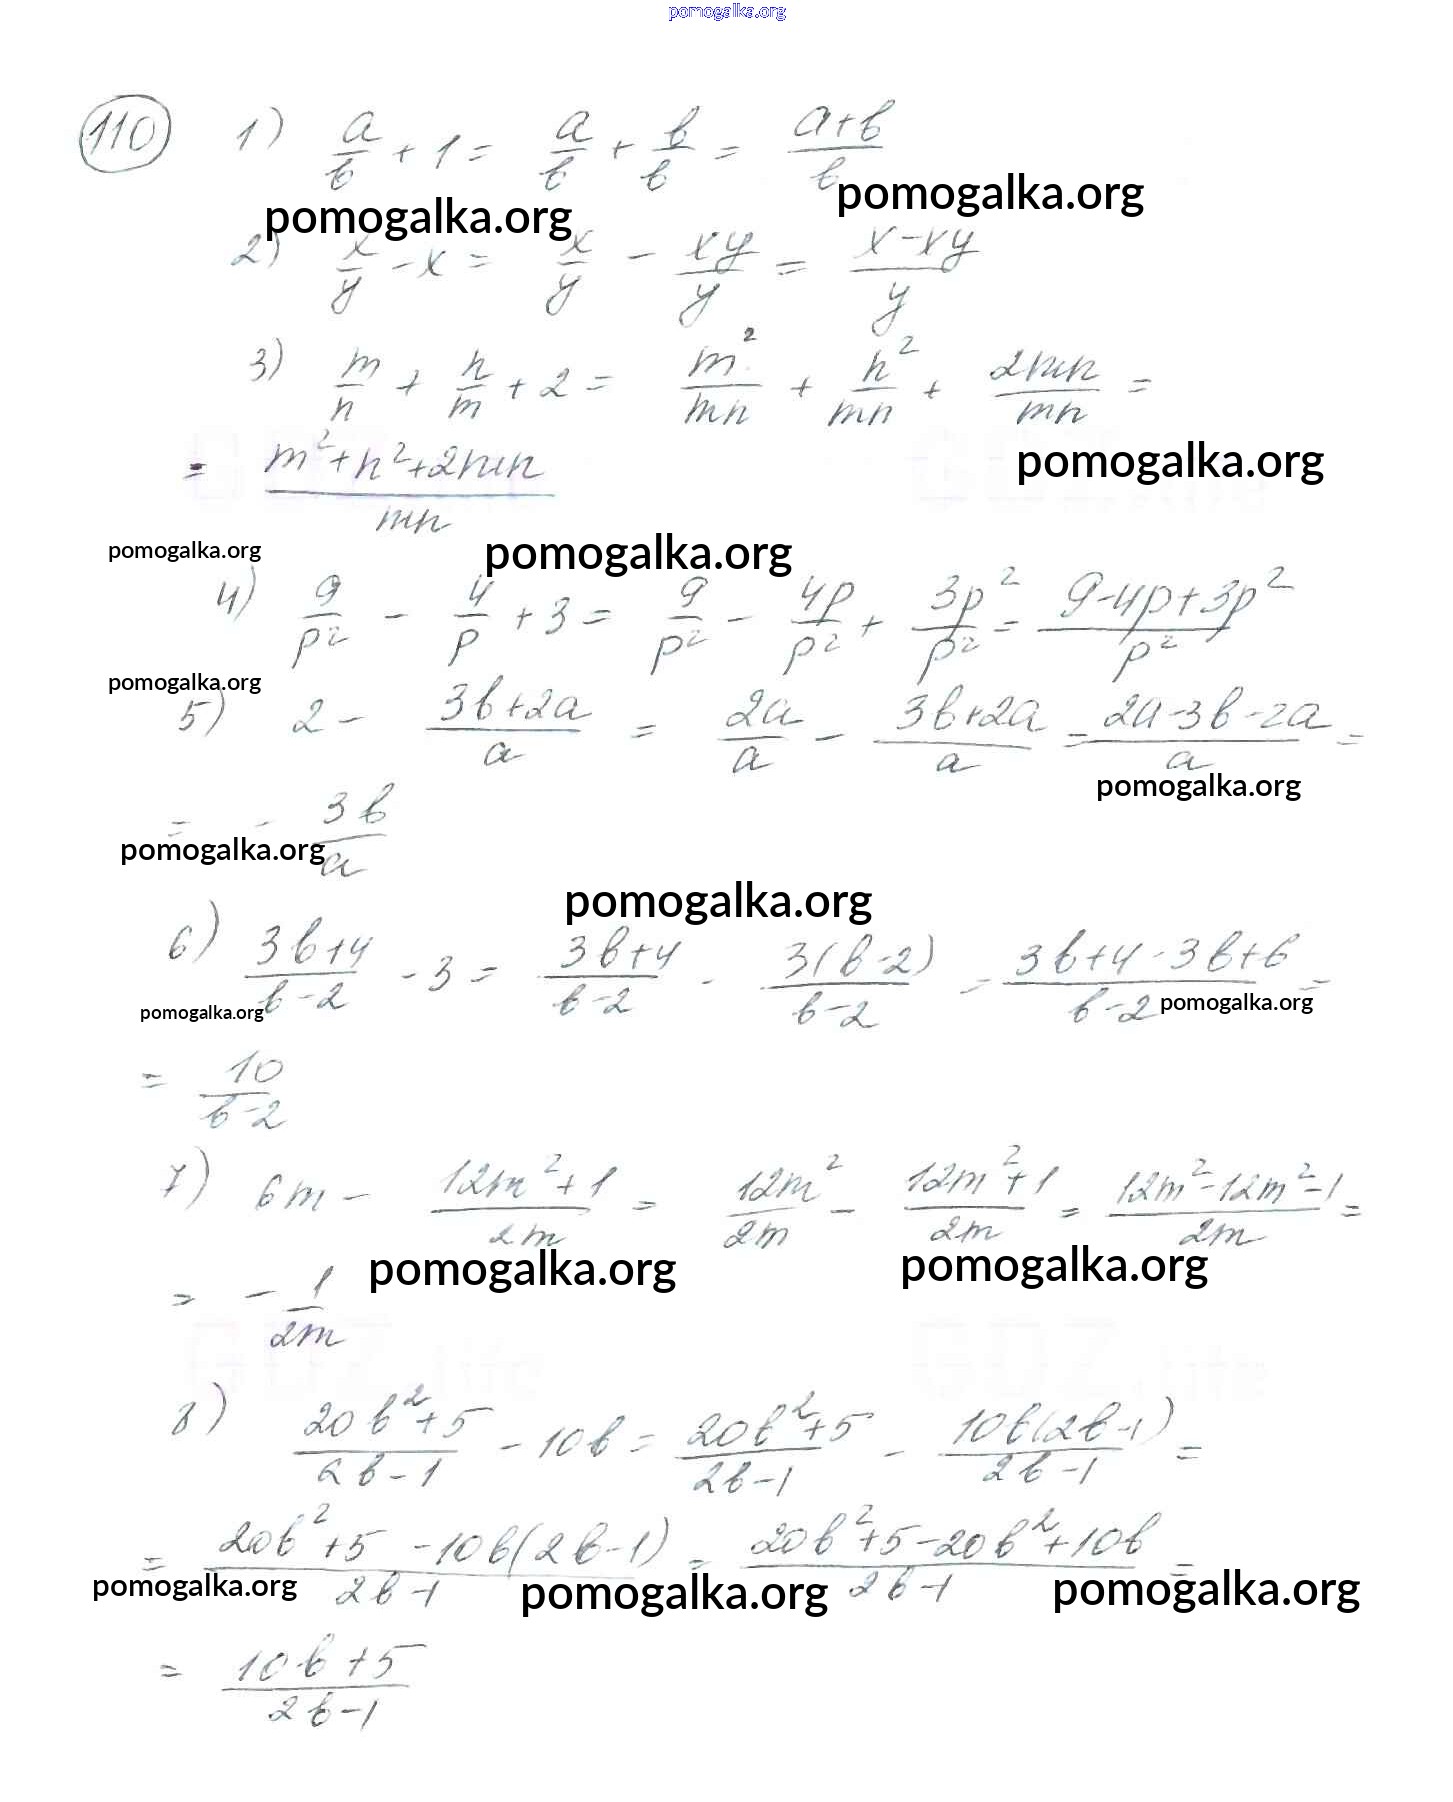 pomogalka.org
110 1) a/b + 1 = a/b + b/b = (a+b)/b
pomogalka.org pomogalka.org
2) x/y - x = x/y - xy/y = (x-xy)/y
3) m/n + n/m + 2 = m²/mn + n²/mn + 2mn/mn =
= (m²+n²+2mn)/mn
pomogalka.org
pomogalka.org pomogalka.org
4) 9/p² - 4/p + 3 = 9/p² - 4p/p² + 3p²/p² = (9-4p+3p²)/p²
pomogalka.org
5) 2 - (3b+2a)/a = 2a/a - (3b+2a)/a = (2a-3b-2a)/a =
pomogalka.org
= - 3b/a
pomogalka.org
pomogalka.org
6) (3b+4)/(b-2) - 3 = (3b+4)/(b-2) - 3(b-2)/(b-2) = (3b+4-3b+6)/(b-2) =
pomogalka.org pomogalka.org
= 10/(b-2)
7) 6m - (12m²+1)/2m = 12m²/2m - (12m²+1)/2m = (12m²-12m²-1)/2m =
pomogalka.org pomogalka.org
= - 1/2m
GDZ.life GDZ.life
8) (20b²+5)/(2b-1) - 10b = (20b²+5)/(2b-1) - 10b(2b-1)/(2b-1) =
= (20b²+5-10b(2b-1))/(2b-1) = (20b²+5-20b²+10b)/(2b-1) =
pomogalka.org pomogalka.org pomogalka.org
= (10b+5)/(2b-1)